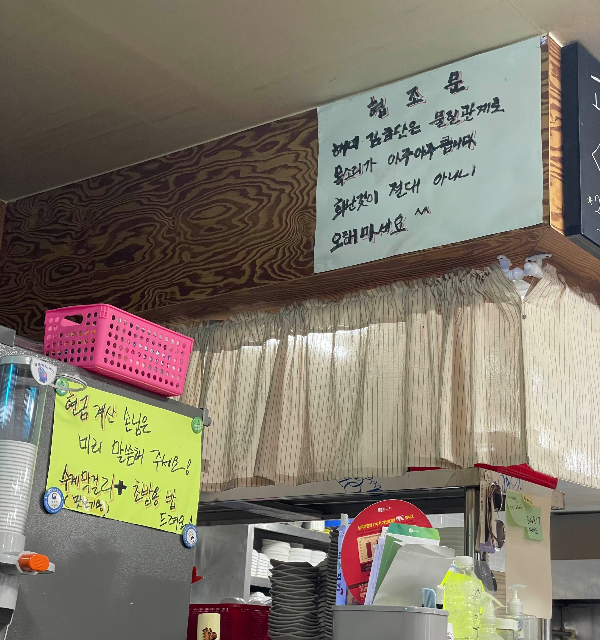 협조문
해녀 김금단은 물질관계로
목소리가 아주아주 큽니다
화난것이 절대 아니니
오해마세요 ^^
현금 계산 손님은
미리 말씀해 주세요~!
수제막걸리 + 초밥용 밥
드려요!